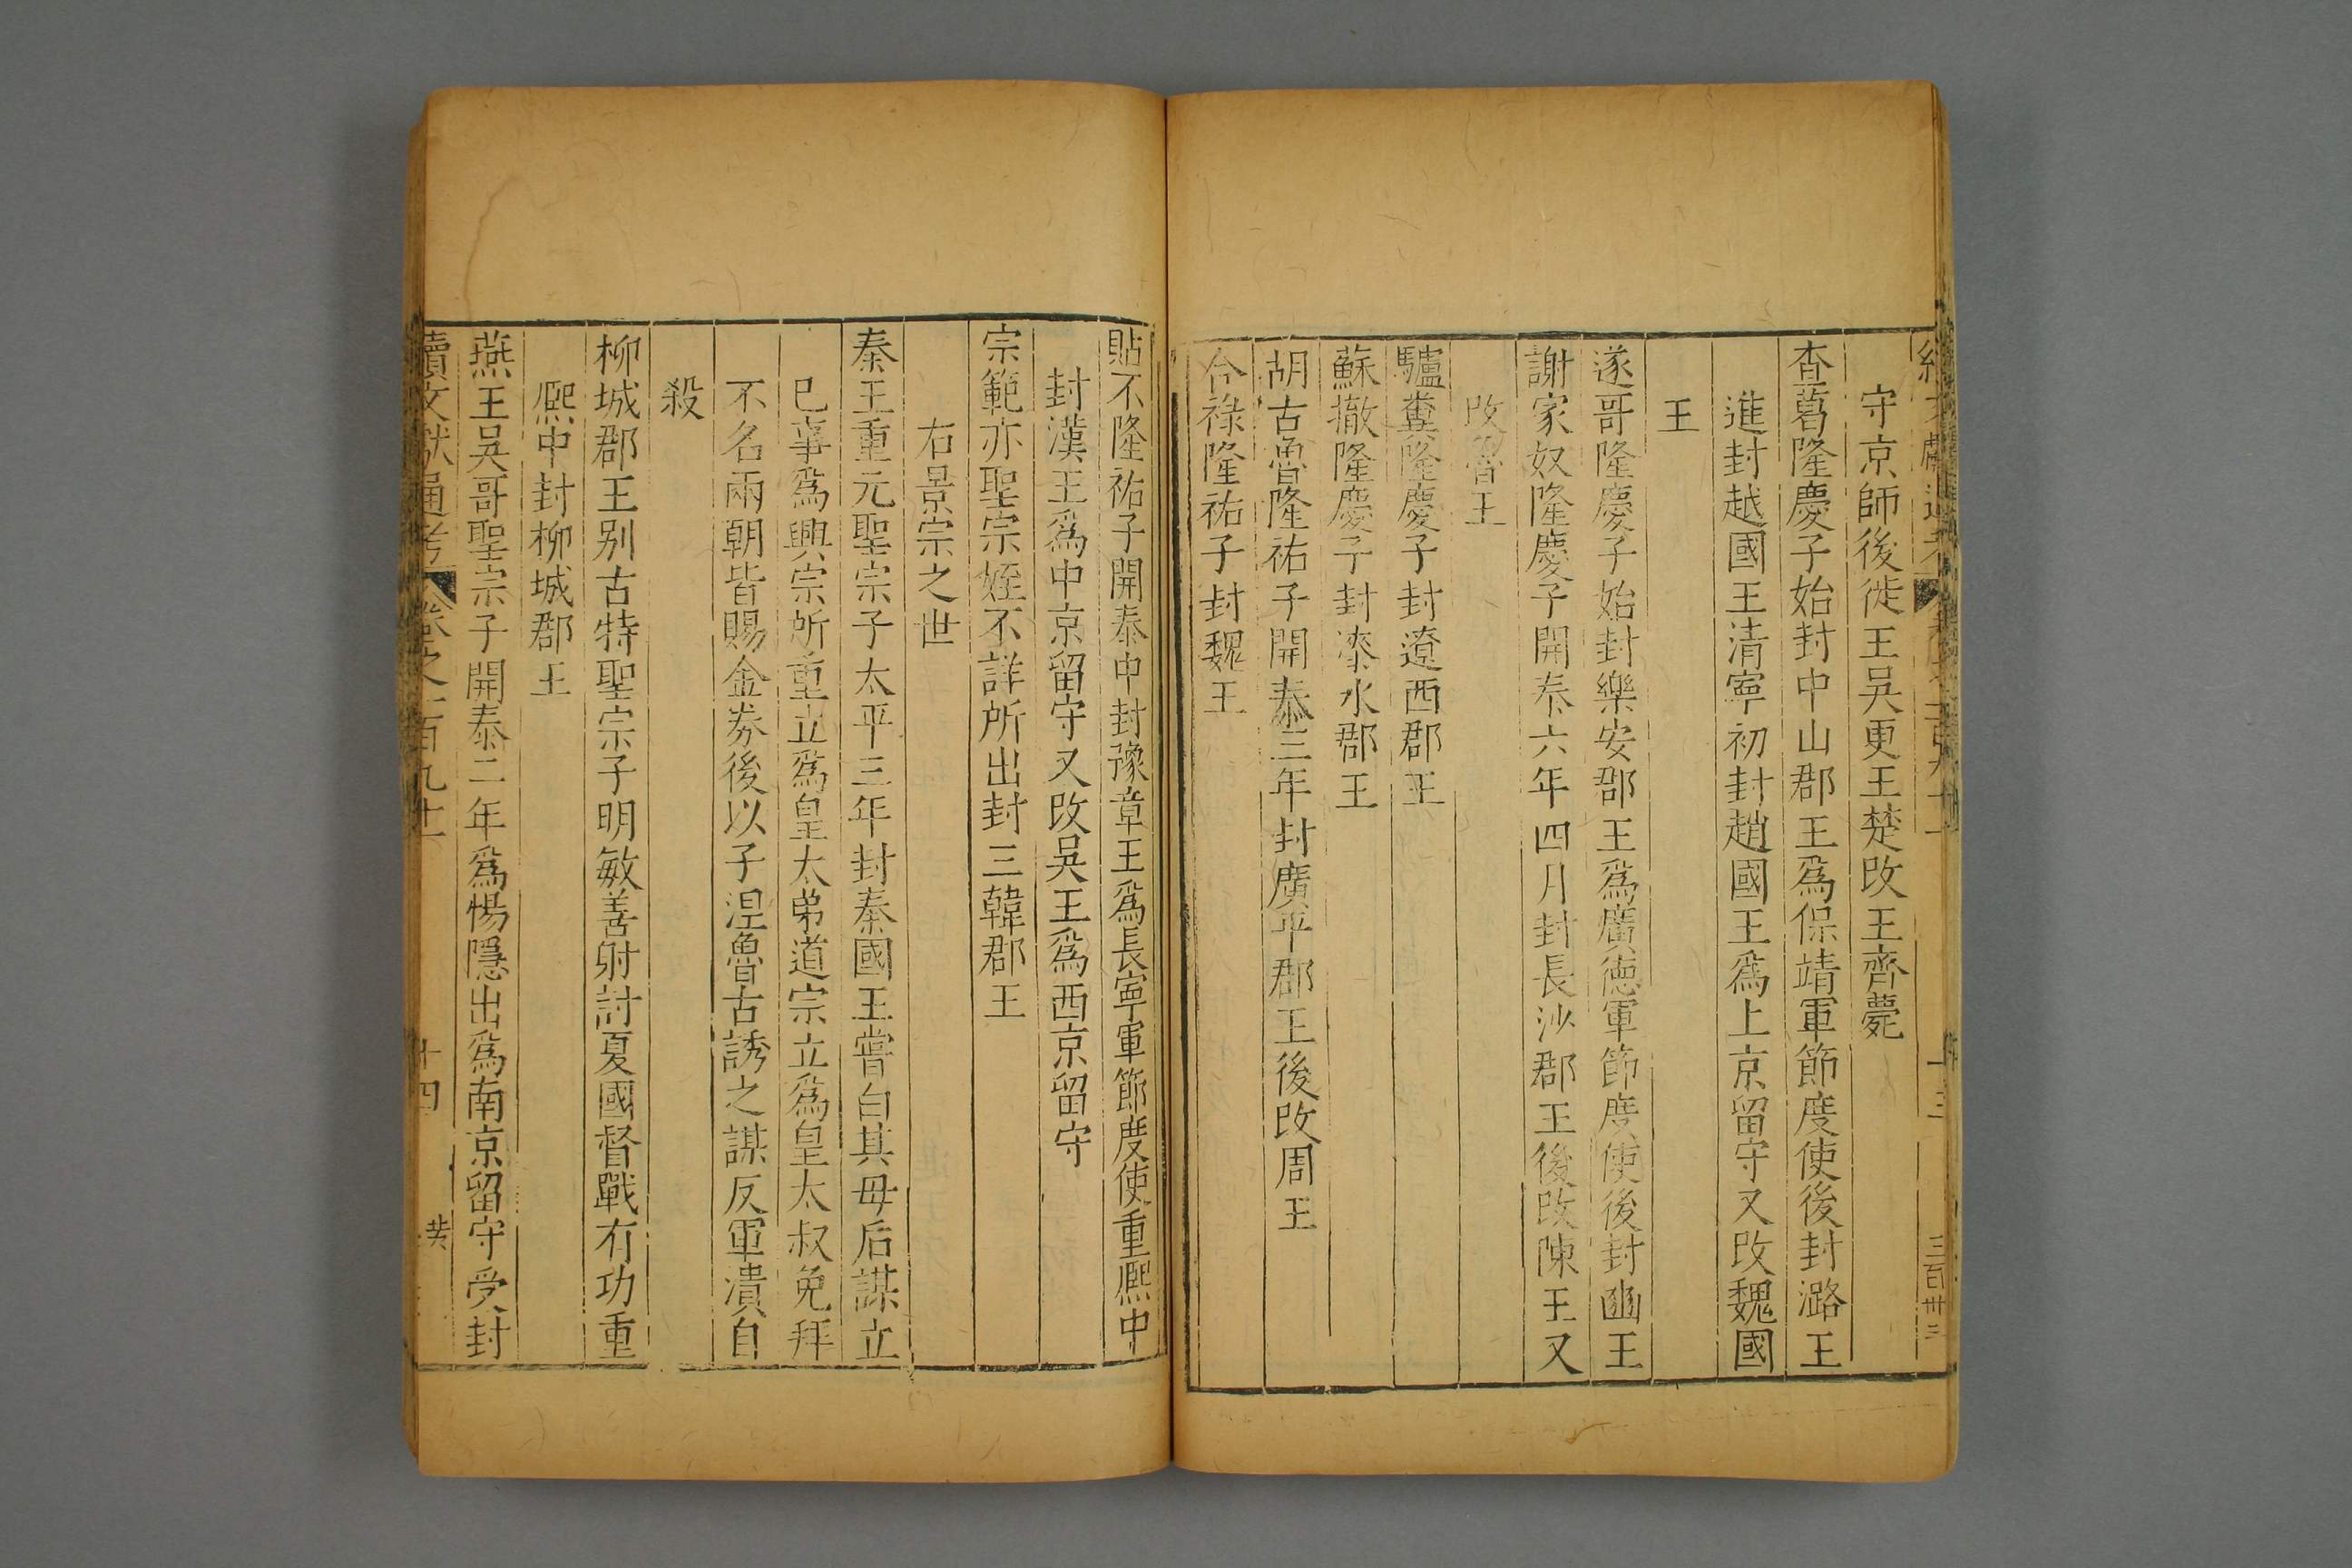 守京師後徙王吳更王楚改王齊薨
查葛隆慶子始封中山郡王爲保靖軍節度使後封潞王
進封越國王清寧初封趙國王爲上京留守又改魏國
王
遂哥隆慶子始封樂安郡王爲廣德軍節度使後封豳王
謝家奴隆慶子開泰六年四月封長沙郡王後改陳王又
改魯王
驢糞隆慶子封遼西郡王
蘇撤隆慶子封漆水郡王
胡古魯隆祐子開泰三年封廣平郡王後改周王
合祿隆祐子封魏王
貼不隆祐子開泰中封豫章王爲長寧軍節度使重熙中
封漢王爲中京留守又改吳王爲西京留守
宗範亦聖宗姪不詳所出封三韓郡王
右景宗之世
秦王重元聖宗子太平三年封秦國王嘗白其母后謀立
己事爲興宗所重立爲皇太弟道宗立爲皇太叔免拜
不名兩朝皆賜金券後以子涅魯古誘之謀反軍潰自
殺
柳城郡王别古特聖宗子明敏善射討夏國督戰有功重
熙中封柳城郡王
燕王吳哥聖宗子開泰二年爲惕隱出爲南京留守受封
續文獻通考 卷之二百九十一 十四